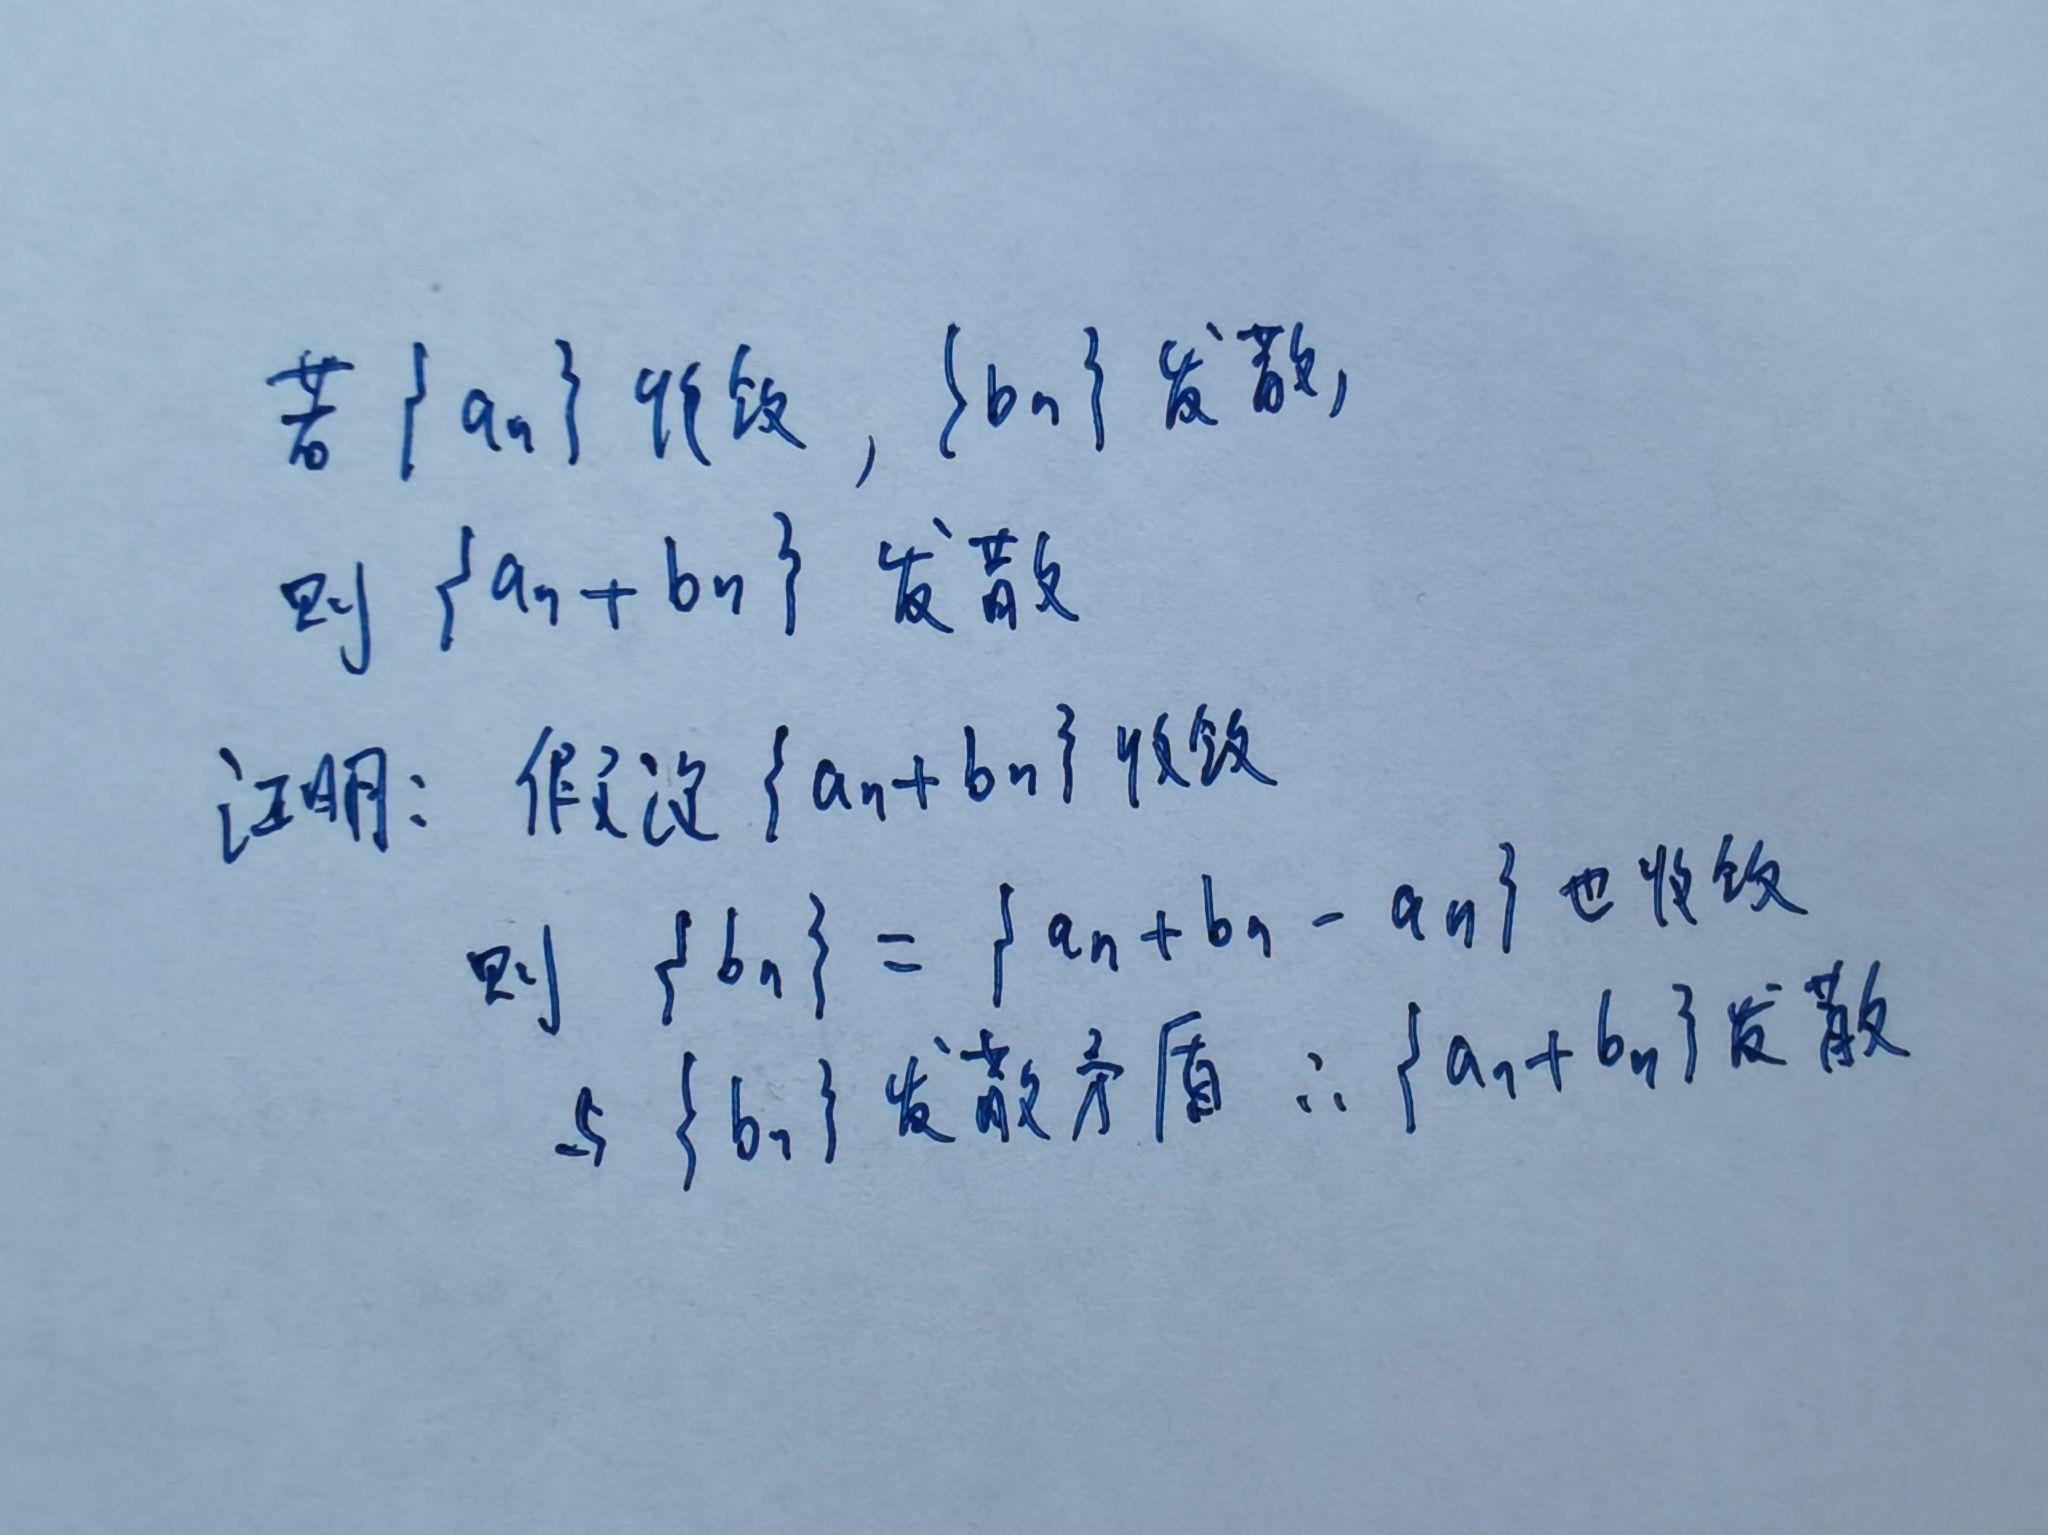 若{aₙ}收敛,{bₙ}发散,
则{aₙ+bₙ}发散
证明:假设{aₙ+bₙ}收敛
则{bₙ}={aₙ+bₙ-aₙ}也收敛
与{bₙ}发散矛盾∴{aₙ+bₙ}发散